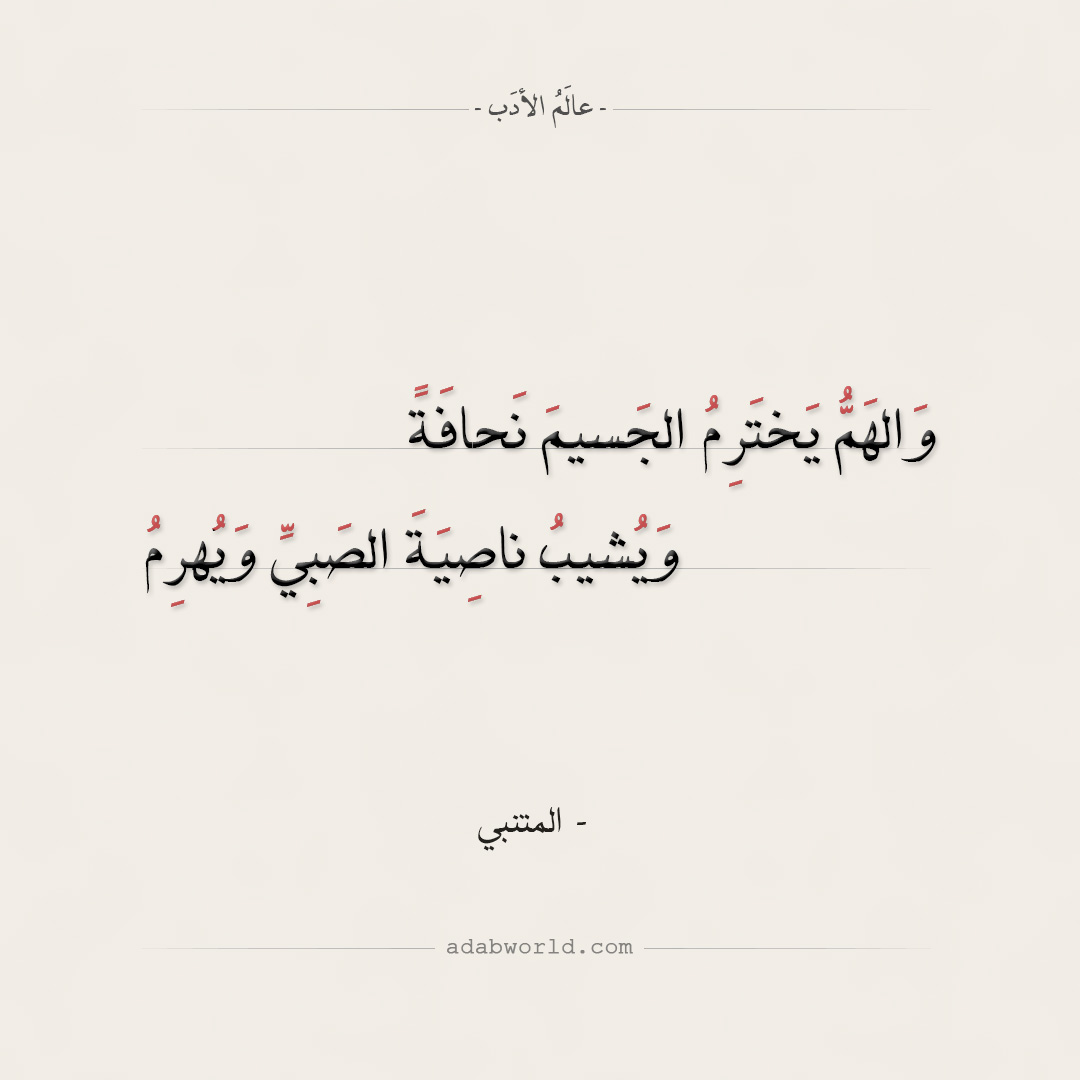 - عالَمُ الأدَب -
وَالهَمُّ يَختَرِمُ الجَسيمَ نَحافَةً
وَيُشيبُ ناصِيَةَ الصَبِيِّ وَيُهرِمُ
- المتنبي
adabworld.com